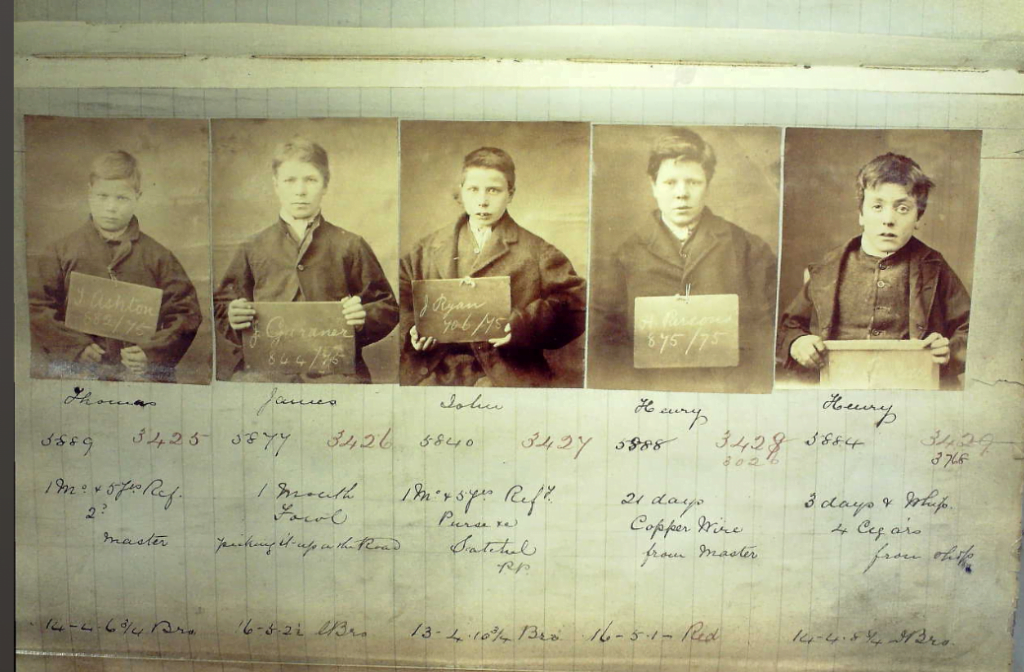 J Ashton
/75
J Gardner
844/75
J Ryan
706/75
875/75
Thomas
James
John
Henry
Henry
5889 3425
5877 3426
5840 3427
5888 3428
3026
5884 3429
3768
1 Mo & 5 yrs Ref.
2s
Master
1 Month
Fowl
picking it up on the Road
1 Mo & 5 yrs Ref.
Purse &c
Satchel
21 days
Copper Wire
from Master
3 days & Whip.
4 Cigars
from
14-4-6¾ Bro
16-5-2½ Bro
13-4-10¾ Bro
16-5-1- Red
14-4-8¼ Bro